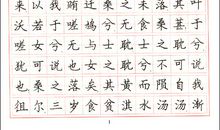 来以我贿迁桑之未落其叶
沃若于嗟鸠兮无食桑葚于
嗟女兮无与士耽士之耽兮
犹可说也女之耽兮不可说
也桑之落矣其黄而陨自我
徂尔三岁食贫淇水汤汤渐
1